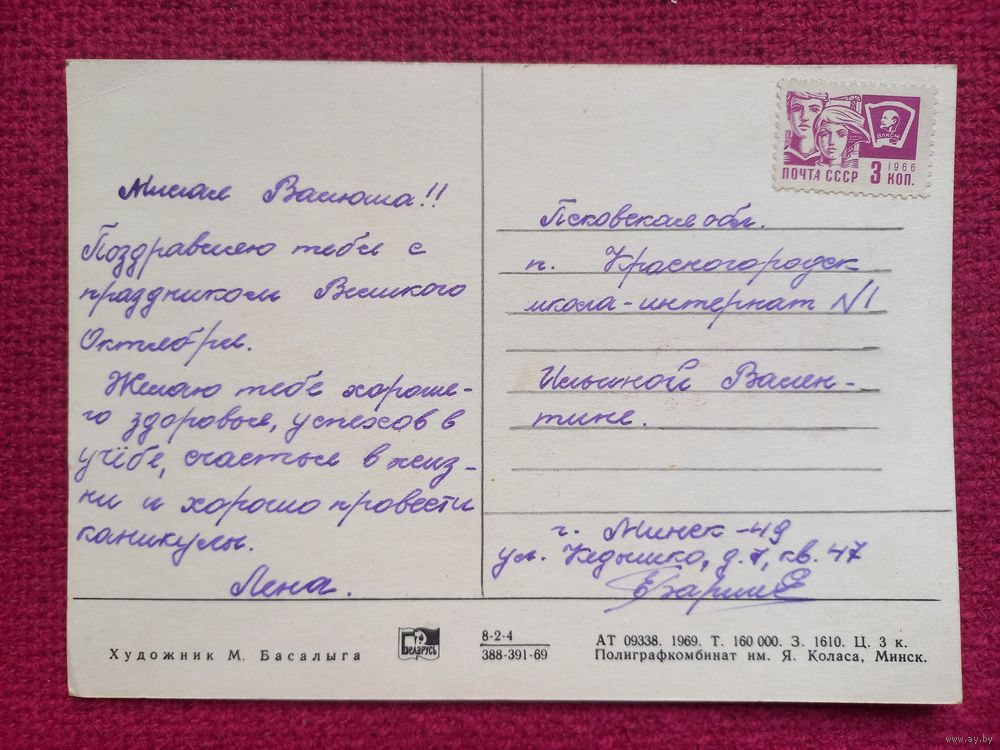 Милая Валюша!!
Поздравляю тебя с
праздником Великого
Октября.
Желаю тебе хороше-
го здоровья, успехов в
учёбе, счастья в жиз-
ни и хорошо провести
каникулы.
Лена.
ПОЧТА СССР 3 КОП.
1966
ВЛКСМ
Псковская обл.
п. Красногородск
школа-интернат N1
Ильиной Вален-
тине.
г. Минск-49
ул. Кедышко, д. 7, кв. 47
Художник М. Басалыга
БЕЛАРУСЬ
8-2-4
388-391-69
АТ 09338. 1969. Т. 160 000. З. 1610. Ц. 3 к.
Полиграфкомбинат им. Я. Коласа, Минск.
www.ay.by